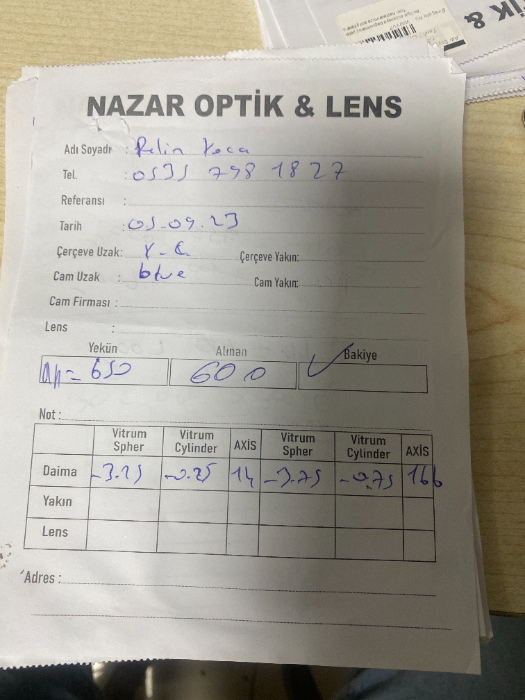 NAZAR OPTİK & LENS
Adı Soyadı : Pelin Koca
Tel. : 0535 798 1827
Referansı :
Tarih : 05.09.23
Çerçeve Uzak: Çerçeve Yakın:
Cam Uzak : blue Cam Yakın:
Cam Firması :
Lens :
Yekün Alınan Bakiye
= 650 600 ✓
Not :
Vitrum Spher Vitrum Cylinder AXİS Vitrum Spher Vitrum Cylinder AXİS
Daima -3.25 -0.25 14 -3.75 -0.75 166
Yakın
Lens
Adres :